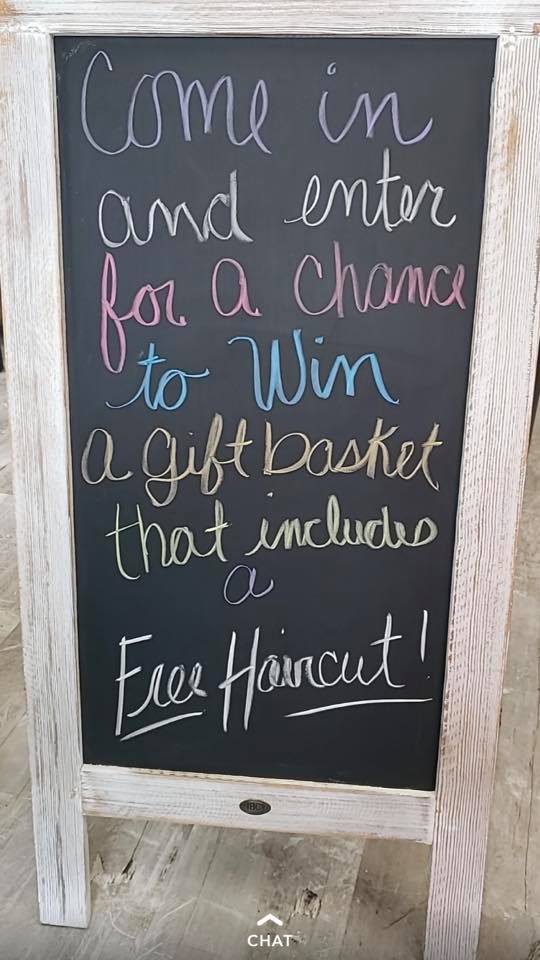 Come in
and enter
for a chance
to Win
a gift basket
that includes
a
Free Haircut!
CHAT